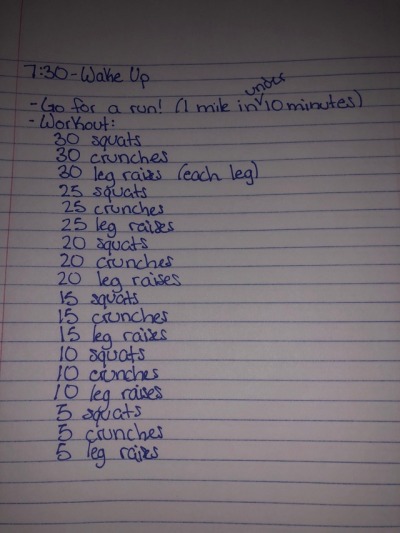 7:30-Wake Up
- Go for a run! (1 mile in under 10 minutes)
- Workout:
30 squats
30 crunches
30 leg raises (each leg)
25 squats
25 crunches
25 leg raises
20 squats
20 crunches
20 leg raises
15 squats
15 crunches
15 leg raises
10 squats
10 crunches
10 leg raises
5 squats
5 crunches
5 leg raises